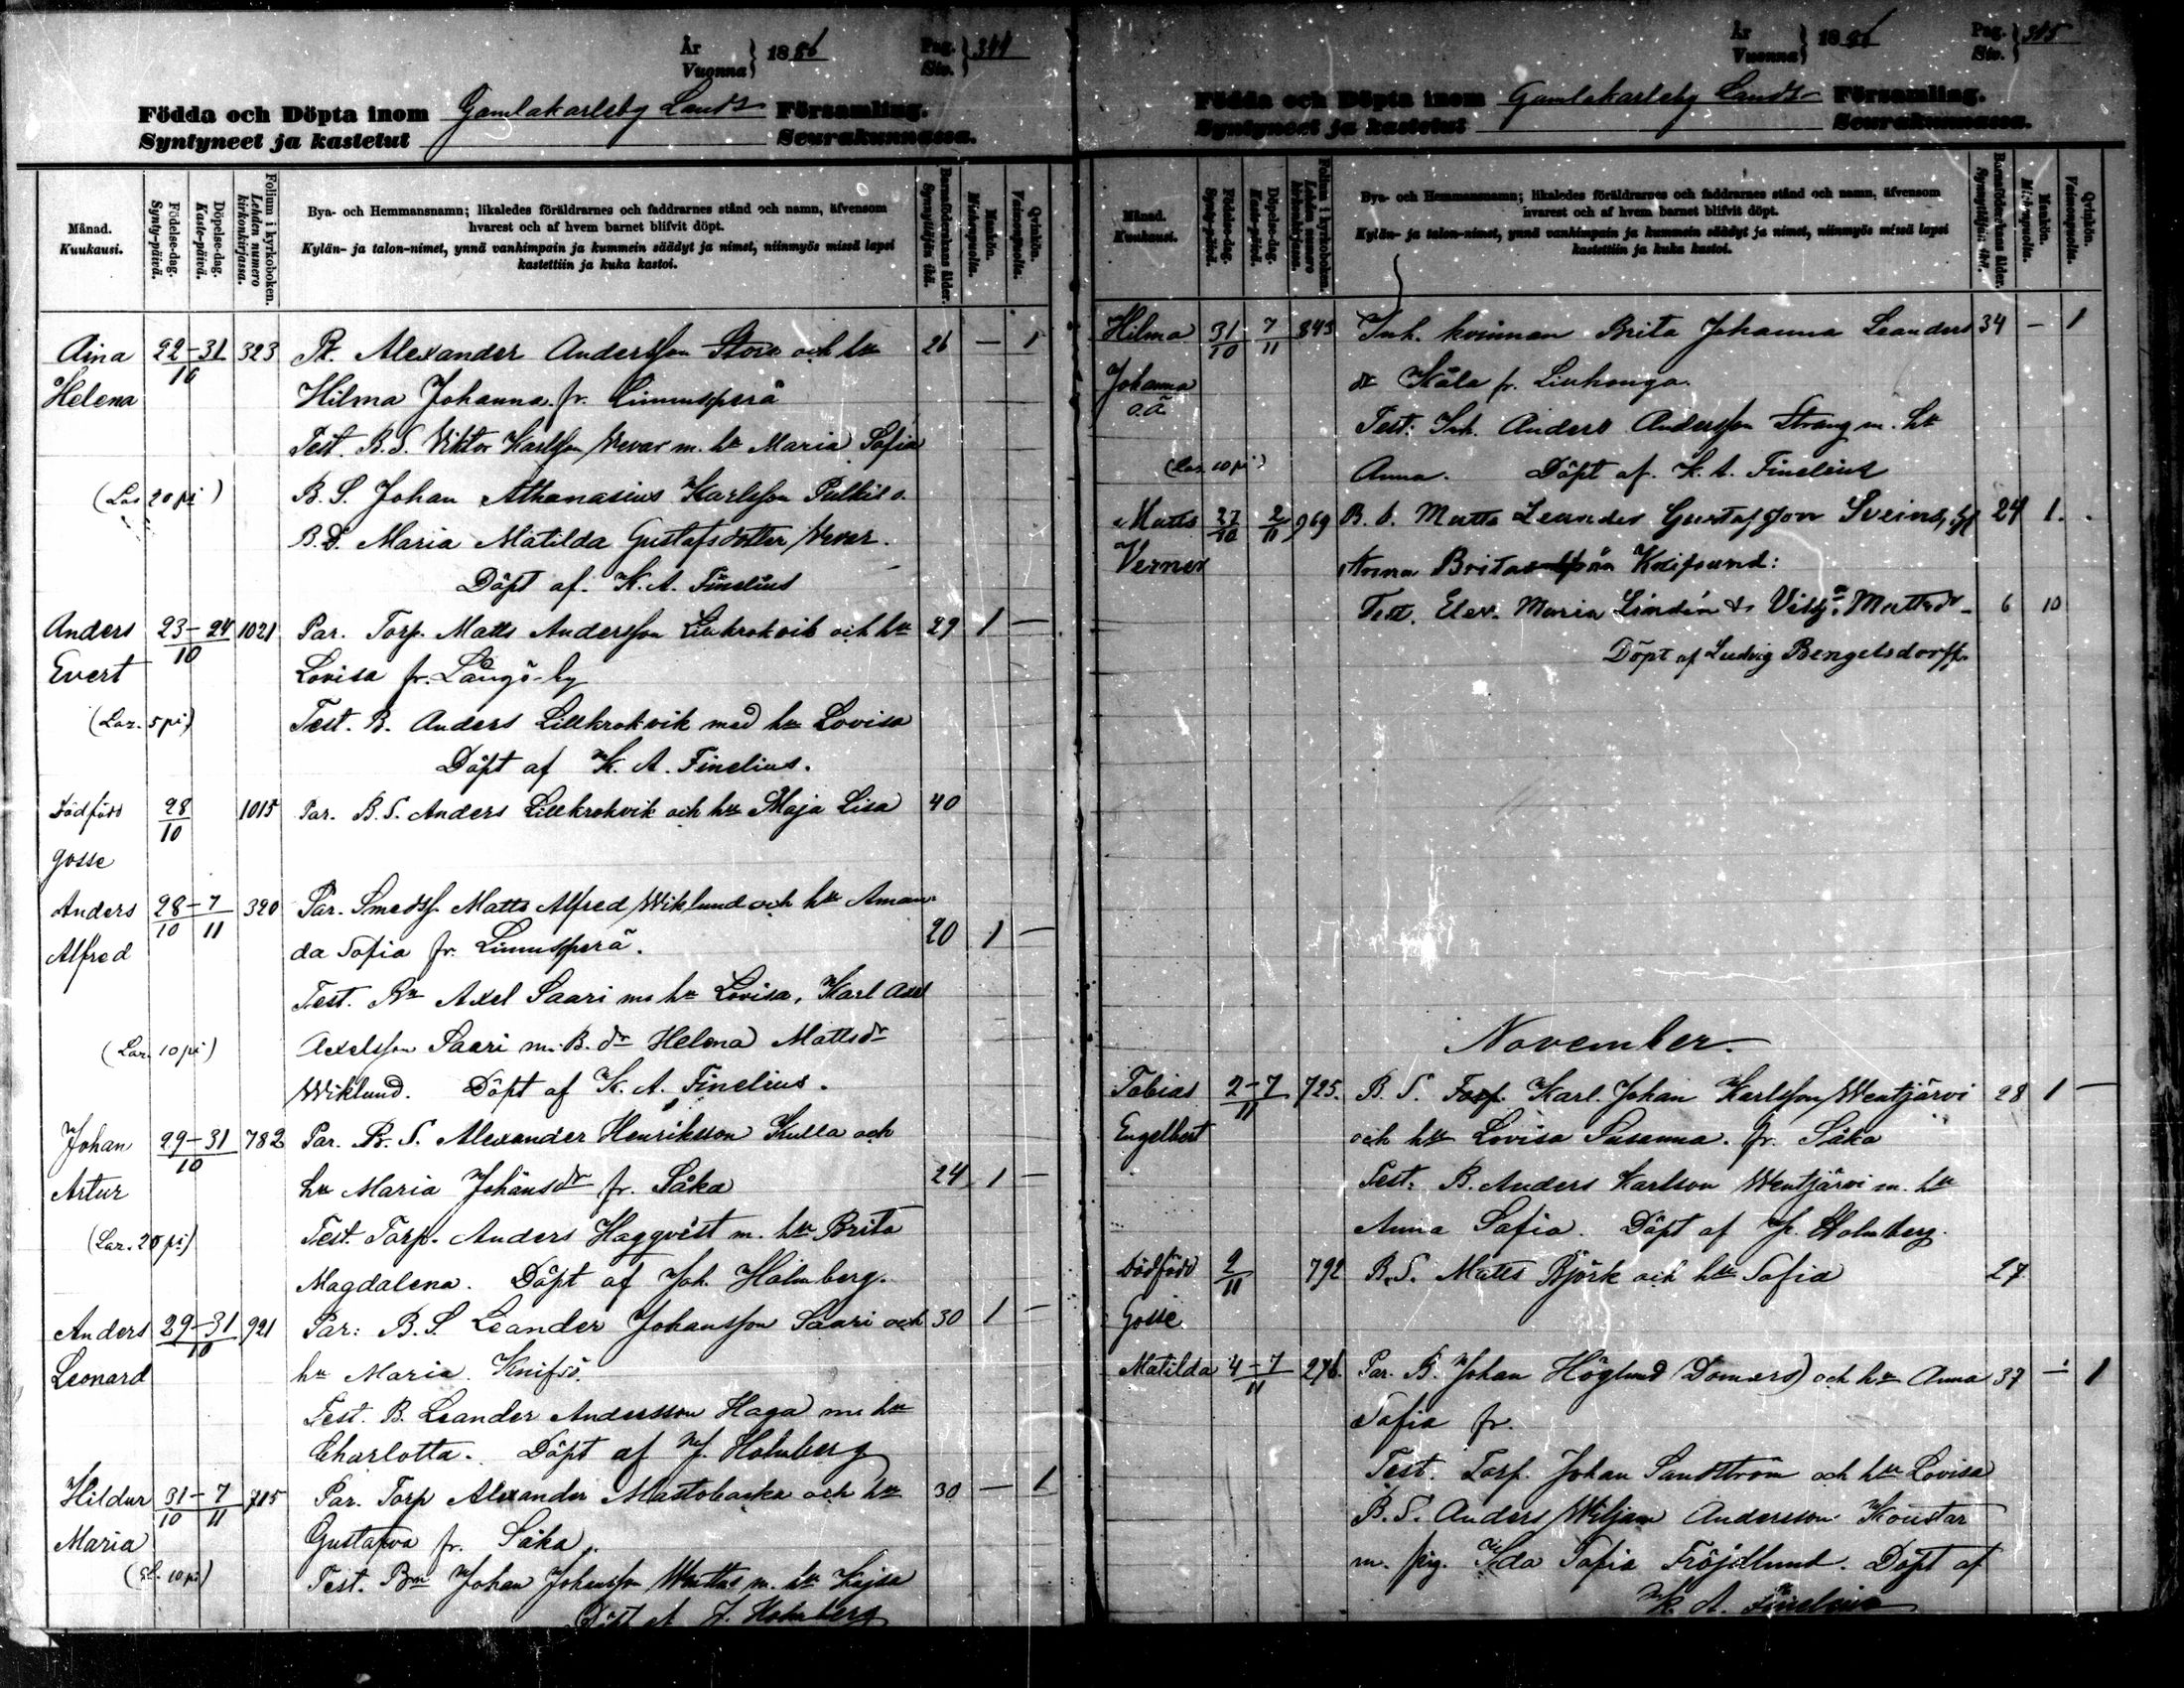 År
Vuonna } 1886
Pag.
Siv. } 344
Födda och Döpta inom Gamlakarleby Lands Församling.
Syntyneet ja kastetut Seurakunnassa.
Månad.
Kuukausi.
Födelse-dag.
Synty-päivä.
Döpelse-dag.
Kaste-päivä.
Folium i kyrkoboken.
Lehden numero kirkonkirjassa.
Bya- och Hemmansnamn; likaledes föräldrarnes och faddrarnes stånd och namn, äfvensom
hvarest och af hvem barnet blifvit döpt.
Kylän- ja talon-nimet, ynnä vanhimpain ja kummein säädyt ja nimet, niinmyös missä lapsi
kastettiin ja kuka kastoi.
Barnaföderskans ålder.
Synnyttäjän ikä.
Mankön.
Miehenpuolia.
Qvinkön.
Vaimonpuolia.
Aina 22-31/10 323 Alexander Andersson Stora och hu 26 — 1
Helena Hilma Johanna fr. Linnusperä
Test. B.S. Viktor Karlsson Wevar m. hu Maria Sofia
(Las 20 pi) B.S. Johan Athanasius Karlsson
B.D. Maria Matilda Gustafsdotter Wevar.
Döpt af K. A. Finelius
Anders 23-24/10 1021 Par. Torp. Matts Andersson Lillkrokvik och hu 29 1 —
Evert Lovisa fr. Långö by
(Laz. 5 pi) Test. B. Anders Lillkrokvik med hu Lovisa
Döpt af K. A. Finelius.
Dödfödd 28/10 1015 Par. B.S. Anders Lillkrokvik och hu Maja Lisa 40
gosse
Anders 28/10-7/11 320 Par. Smedss. Matts Alfred Wiklund och hu Aman-
Alfred da Sofia fr. Linnusperä. 20 1 —
Test. Bn Axel Saari m. hu Lovisa, Karl Axel
(Laz. 10 pi) Axelsson Saari m. B. dr Helena Mattsdr
Wiklund. Döpt af K. A. Finelius.
Johan 29-31/10 782 Par. B. S. Alexander Henriksson Kulla och
Artur hu Maria Johansdr fr. Såka 24 1 —
(Laz. 20 pi) Test. Torp. Anders Haggvist m. hu Brita
Magdalena. Döpt af Joh. Holmberg.
Anders 29-31/10 921 Par: B.S. Leander Johansson Saari och 30 1 —
Leonard hu Maria. Knifsö.
Test. B. Leander Andersson Haga m. hu
Charlotta. Döpt af J. Holmberg
Hildur 31/10-7/11 715 Par. Torp Alexander Mastobacka och hu 30 — 1
Maria Gustafva fr. Såka.
Test. Bn Johan Johansson m. hu Kajsa
Döpt af J. Holmberg
År
Vuonna } 1886
Pag.
Siv. } 345
Födda och Döpta inom Gamlakarleby Lands- Församling.
Syntyneet ja kastetut Seurakunnassa.
Månad.
Kuukausi.
Födelse-dag.
Synty-päivä.
Döpelse-dag.
Kaste-päivä.
Folium i kyrkoboken.
Lehden numero kirkonkirjassa.
Bya- och Hemmansnamn; likaledes föräldrarnes och faddrarnes stånd och namn, äfvensom
hvarest och af hvem barnet blifvit döpt.
Kylän- ja talon-nimet, ynnä vanhimpain ja kummein säädyt ja nimet, niinmyös missä lapsi
kastettiin ja kuka kastoi.
Barnaföderskans ålder.
Synnyttäjän ikä.
Mankön.
Miehenpuolia.
Qvinkön.
Vaimonpuolia.
Hilma 31/10 7/11 845 Inh. kvinnan Brita Johanna Leanders 34 — 1
Johanna dr Kåla fr. Linhonga.
o.ä. Test: Inh. Anders Andersson Strang m. hu
(Laz. 10 pi) Anna. Döpt af K. A. Finelius
Matts 27/10 2/11 969 B. S. Matts Leander Gustafsson Sveins, 24 1.
Verner Anna Brita från Knifsund:
Test. Elev. Maria Lindén 6 10
Döpt af Ludvig Bengelsdorff.
November.
Tobias 2-7/11 725. B. S. Torp. Karl Johan Karlsson Wentjärvi 28 1 —
Engelbert och hu Lovisa Susanna fr. Såka
Test. B. Anders Karlson Wentjärvi m. hu
Anna Sofia. Döpt af J. Holmberg.
Dödfödd 2/11 792 B.S. Matts Björk och hu Sofia 27
Gosse
Matilda 4-7/11 276. Par. B. Johan Höglund (Domars) och hu Anna 37 — 1
Sofia fr.
Test. Torp. Johan Sandström och hu Lovisa
B.S. Anders Wiljam Andersson Koustar
m. pig. Ida Sofia Fröjdlund. Döpt af
K. A. Finelius